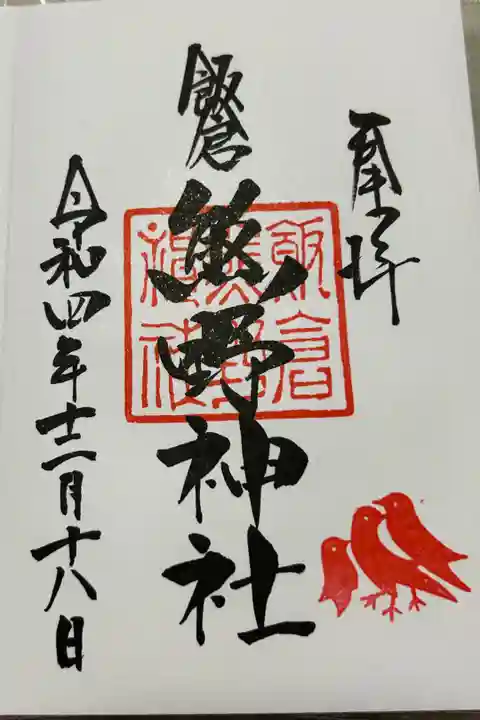 奉拝
飯倉
熊野神社
飯倉
熊野
神社
令和四年十二月十八日